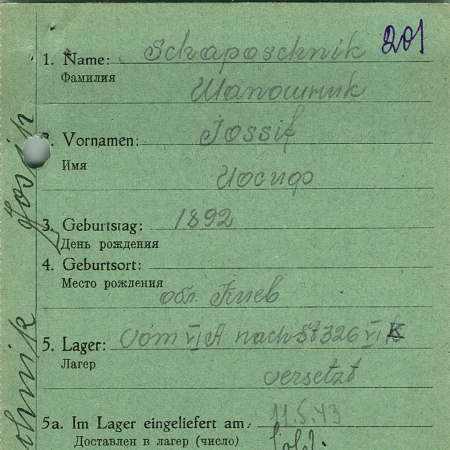 201
1. Name: Schaposchnik
Фамилия
Шапошник
2. Vornamen: Jossif
Имя
Иосиф
3. Geburtstag: 1892
День рождения
4. Geburtsort:
Место рождения
обл. Киев
5. Lager: Vom VI A nach St 326 VI K
Лагер
versetzt
5a. Im Lager eingeliefert am: 11.5.43
Доставлен в лагер (число)